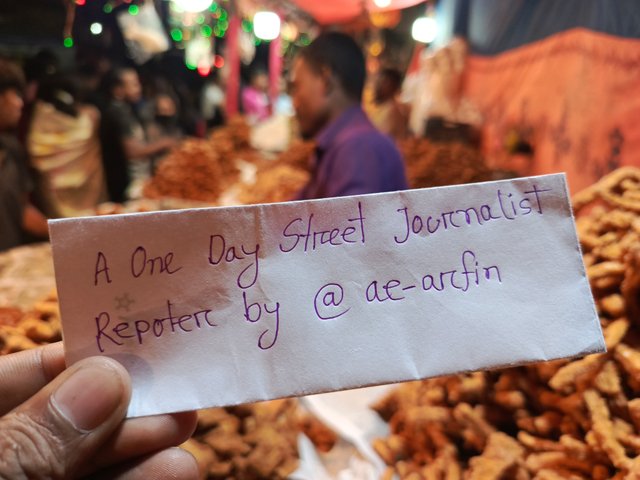 A One Day Street Journalist
Repoter by @ ae-arfin